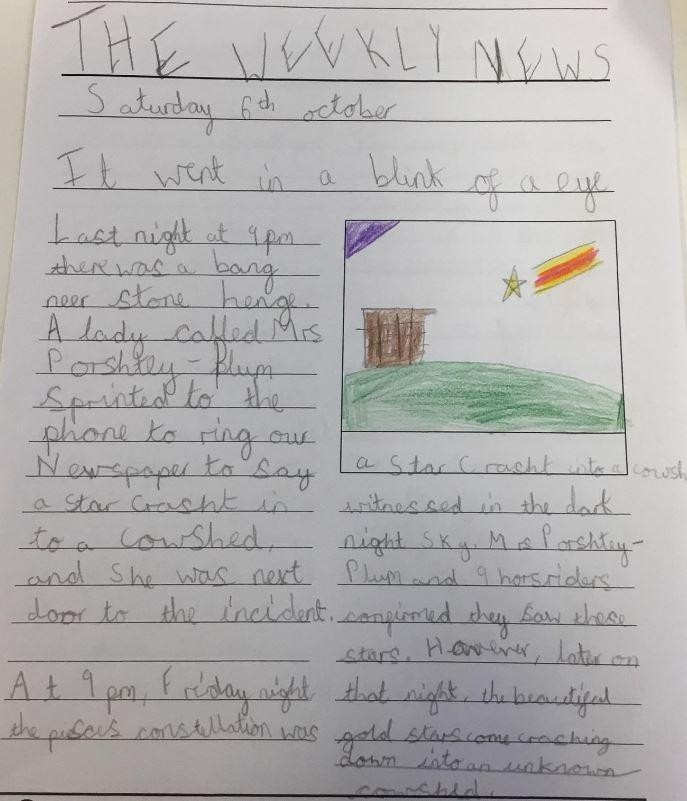 THE WEEKLY NEWS
Saturday 6th october
It went in a blink of a eye
Last night at 9pm
there was a bang
neer stone henge.
A lady called Mrs
Porshtey-Plum
Sprinted to the
phone to ring our
Newspaper to Say
a Star Crasht in
to a CowShed,
and She was next
door to the incident.
At 9 pm, Friday night
the constellation was
a Star Crasht into a cowsh
witnessed in the dark
night Sky. Mrs Porshtey-
Plum and 9 horsriders
confirmed they Saw these
stars. However, later on
that night, the beautiful
gold stars come crashing
down into an unknown
cowshed.